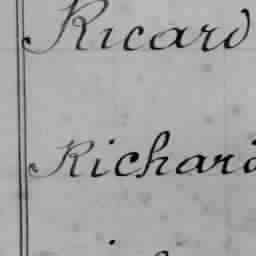 Ricard
Richard